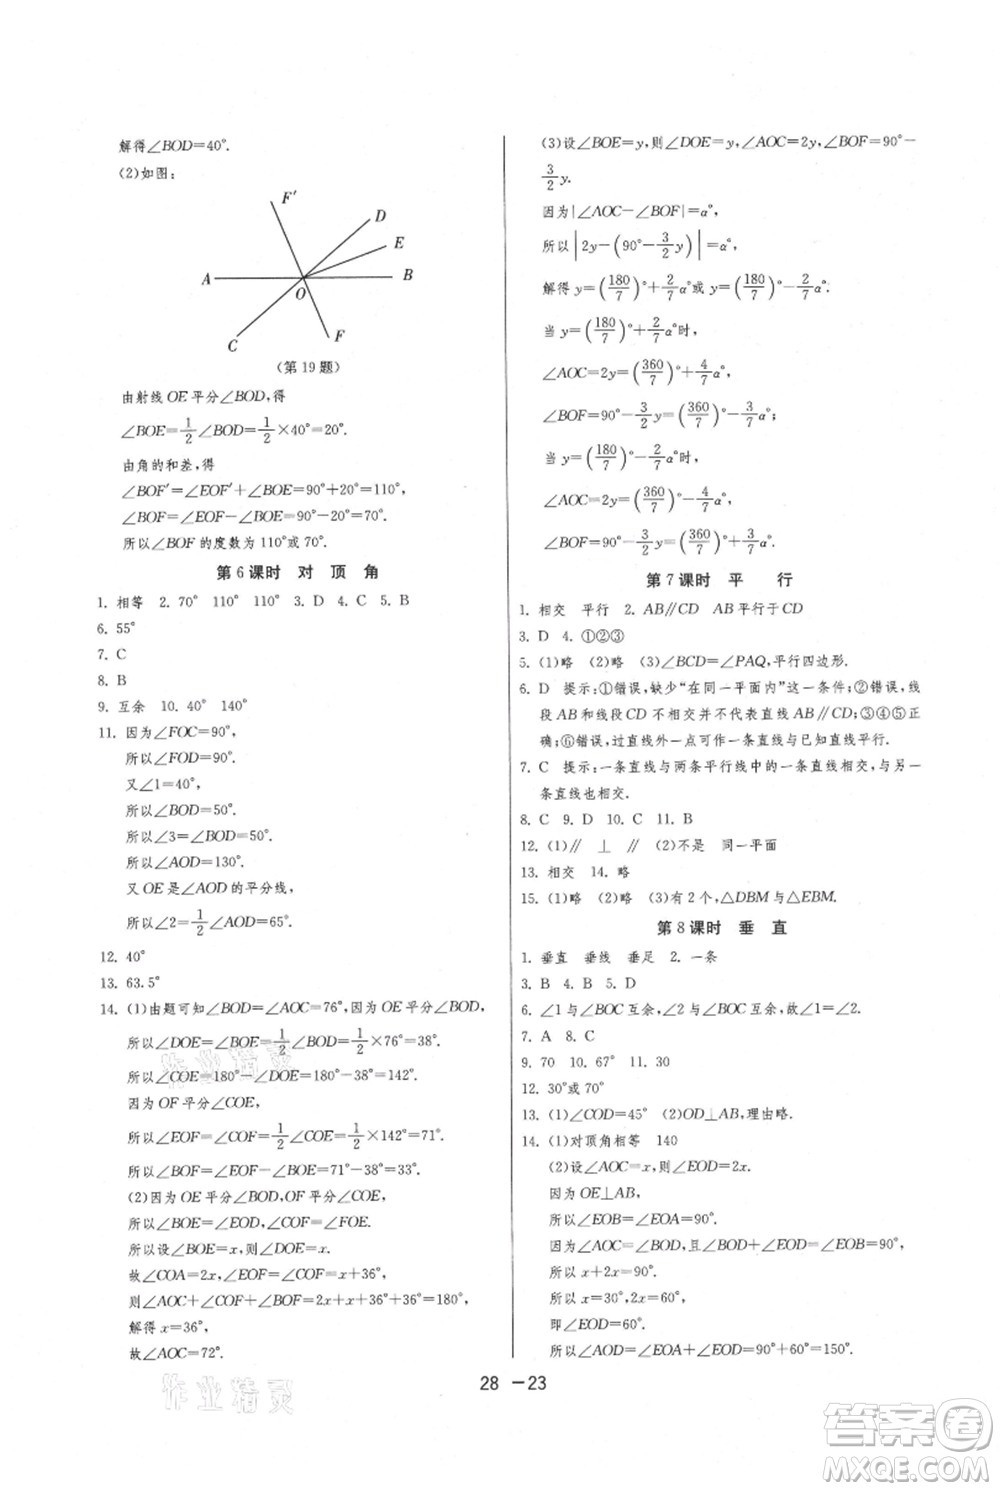 解得∠BOD=40°.
(2)如图:
F'
D
E
A
B
O
C
F
(第19题)
由射线OE平分∠BOD,得
∠BOE=1/2∠BOD=1/2×40°=20°.
由角的和差,得
∠BOF'=∠EOF'+∠BOE=90°+20°=110°,
∠BOF=∠EOF-∠BOE=90°-20°=70°.
所以∠BOF的度数为110°或70°.
第6课时 对 顶 角
1. 相等 2. 70° 110° 110° 3. D 4. C 5. B
6. 55°
7. C
8. B
9. 互余 10. 40° 140°
11. 因为∠FOC=90°,
所以∠FOD=90°.
又∠1=40°,
所以∠BOD=50°.
所以∠3=∠BOD=50°.
所以∠AOD=130°.
又OE是∠AOD的平分线,
所以∠2=1/2∠AOD=65°.
12. 40°
13. 63.5°
14. (1)由题可知∠BOD=∠AOC=76°,因为OE平分∠BOD,
所以∠DOE=∠BOE=1/2∠BOD=1/2×76°=38°.
所以∠COE=180°-∠DOE=180°-38°=142°.
因为OF平分∠COE,
所以∠EOF=∠COF=1/2∠COE=1/2×142°=71°.
所以∠BOF=∠EOF-∠BOE=71°-38°=33°.
(2)因为OE平分∠BOD,OF平分∠COE,
所以∠BOE=∠EOD,∠COF=∠FOE.
所以设∠BOE=x,则∠DOE=x.
故∠COA=2x,∠EOF=∠COF=x+36°,
则∠AOC+∠COF+∠BOF=2x+x+36°+36°=180°,
解得x=36°,
故∠AOC=72°.
(3)设∠BOE=y,则∠DOE=y,∠AOC=2y,∠BOF=90°-
3/2y.
因为|∠AOC-∠BOF|=α°,
所以|2y-(90°-3/2y)|=α°,
解得y=(180/7)°+2/7α°或y=(180/7)°-2/7α°.
当y=(180/7)°+2/7α°时,
∠AOC=2y=(360/7)°+4/7α°,
∠BOF=90°-3/2y=(360/7)°-3/7α°;
当y=(180/7)°-2/7α°时,
∠AOC=2y=(360/7)°-4/7α°,
∠BOF=90°-3/2y=(360/7)°+3/7α°.
第7课时 平 行
1. 相交 平行 2. AB∥CD AB平行于CD
3. D 4. ①②③
5. (1)略 (2)略 (3)∠BCD=∠PAQ,平行四边形.
6. D 提示:①错误,缺少“在同一平面内”这一条件;②错误,线
段AB和线段CD不相交并不代表直线AB∥CD;③④⑤正
确;⑥错误,过直线外一点可作一条直线与已知直线平行.
7. C 提示:一条直线与两条平行线中的一条直线相交,与另一
条直线也相交.
8. C 9. D 10. C 11. B
12. (1)∥ ⊥ ∥ (2)不是 同一平面
13. 相交 14. 略
15. (1)略 (2)略 (3)有2个,△DBM与△EBM.
第8课时 垂 直
1. 垂直 垂线 垂足 2. 一条
3. B 4. B 5. D
6. ∠1与∠BOC互余,∠2与∠BOC互余,故∠1=∠2.
7. A 8. C
9. 70 10. 67° 11. 30
12. 30°或70°
13. (1)∠COD=45° (2)OD⊥AB,理由略.
14. (1)对顶角相等 140
(2)设∠AOC=x,则∠EOD=2x.
因为OE⊥AB,
所以∠EOB=∠EOA=90°.
因为∠AOC=∠BOD,且∠BOD+∠EOD=∠EOB=90°,
所以x+2x=90°.
所以x=30°,2x=60°.
即∠EOD=60°.
所以∠AOD=∠EOA+∠EOD=90°+60°=150°.
28 －23
作业精灵
作业精灵
答案卷
MXQE.COM